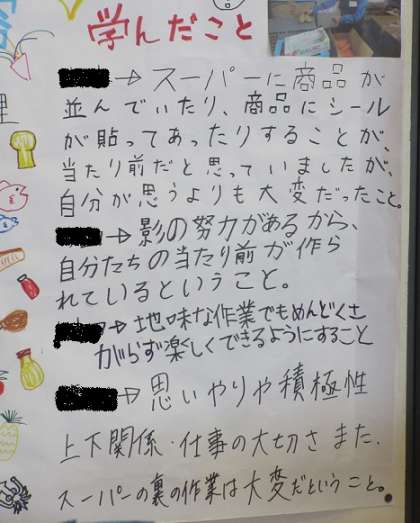 学んだこと
→スーパーに商品が
並んでいたり、商品にシール
が貼ってあったりすることが、
当たり前だと思っていましたが、
自分が思うよりも大変だったこと。
→影の努力があるから、
自分たちの当たり前が作ら
れているということ。
→地味な作業でもめんどくさ
がらず楽しくできるようにすること
→思いやりや積極性
上下関係・仕事の大切さ また、
スーパーの裏の作業は大変だということ。